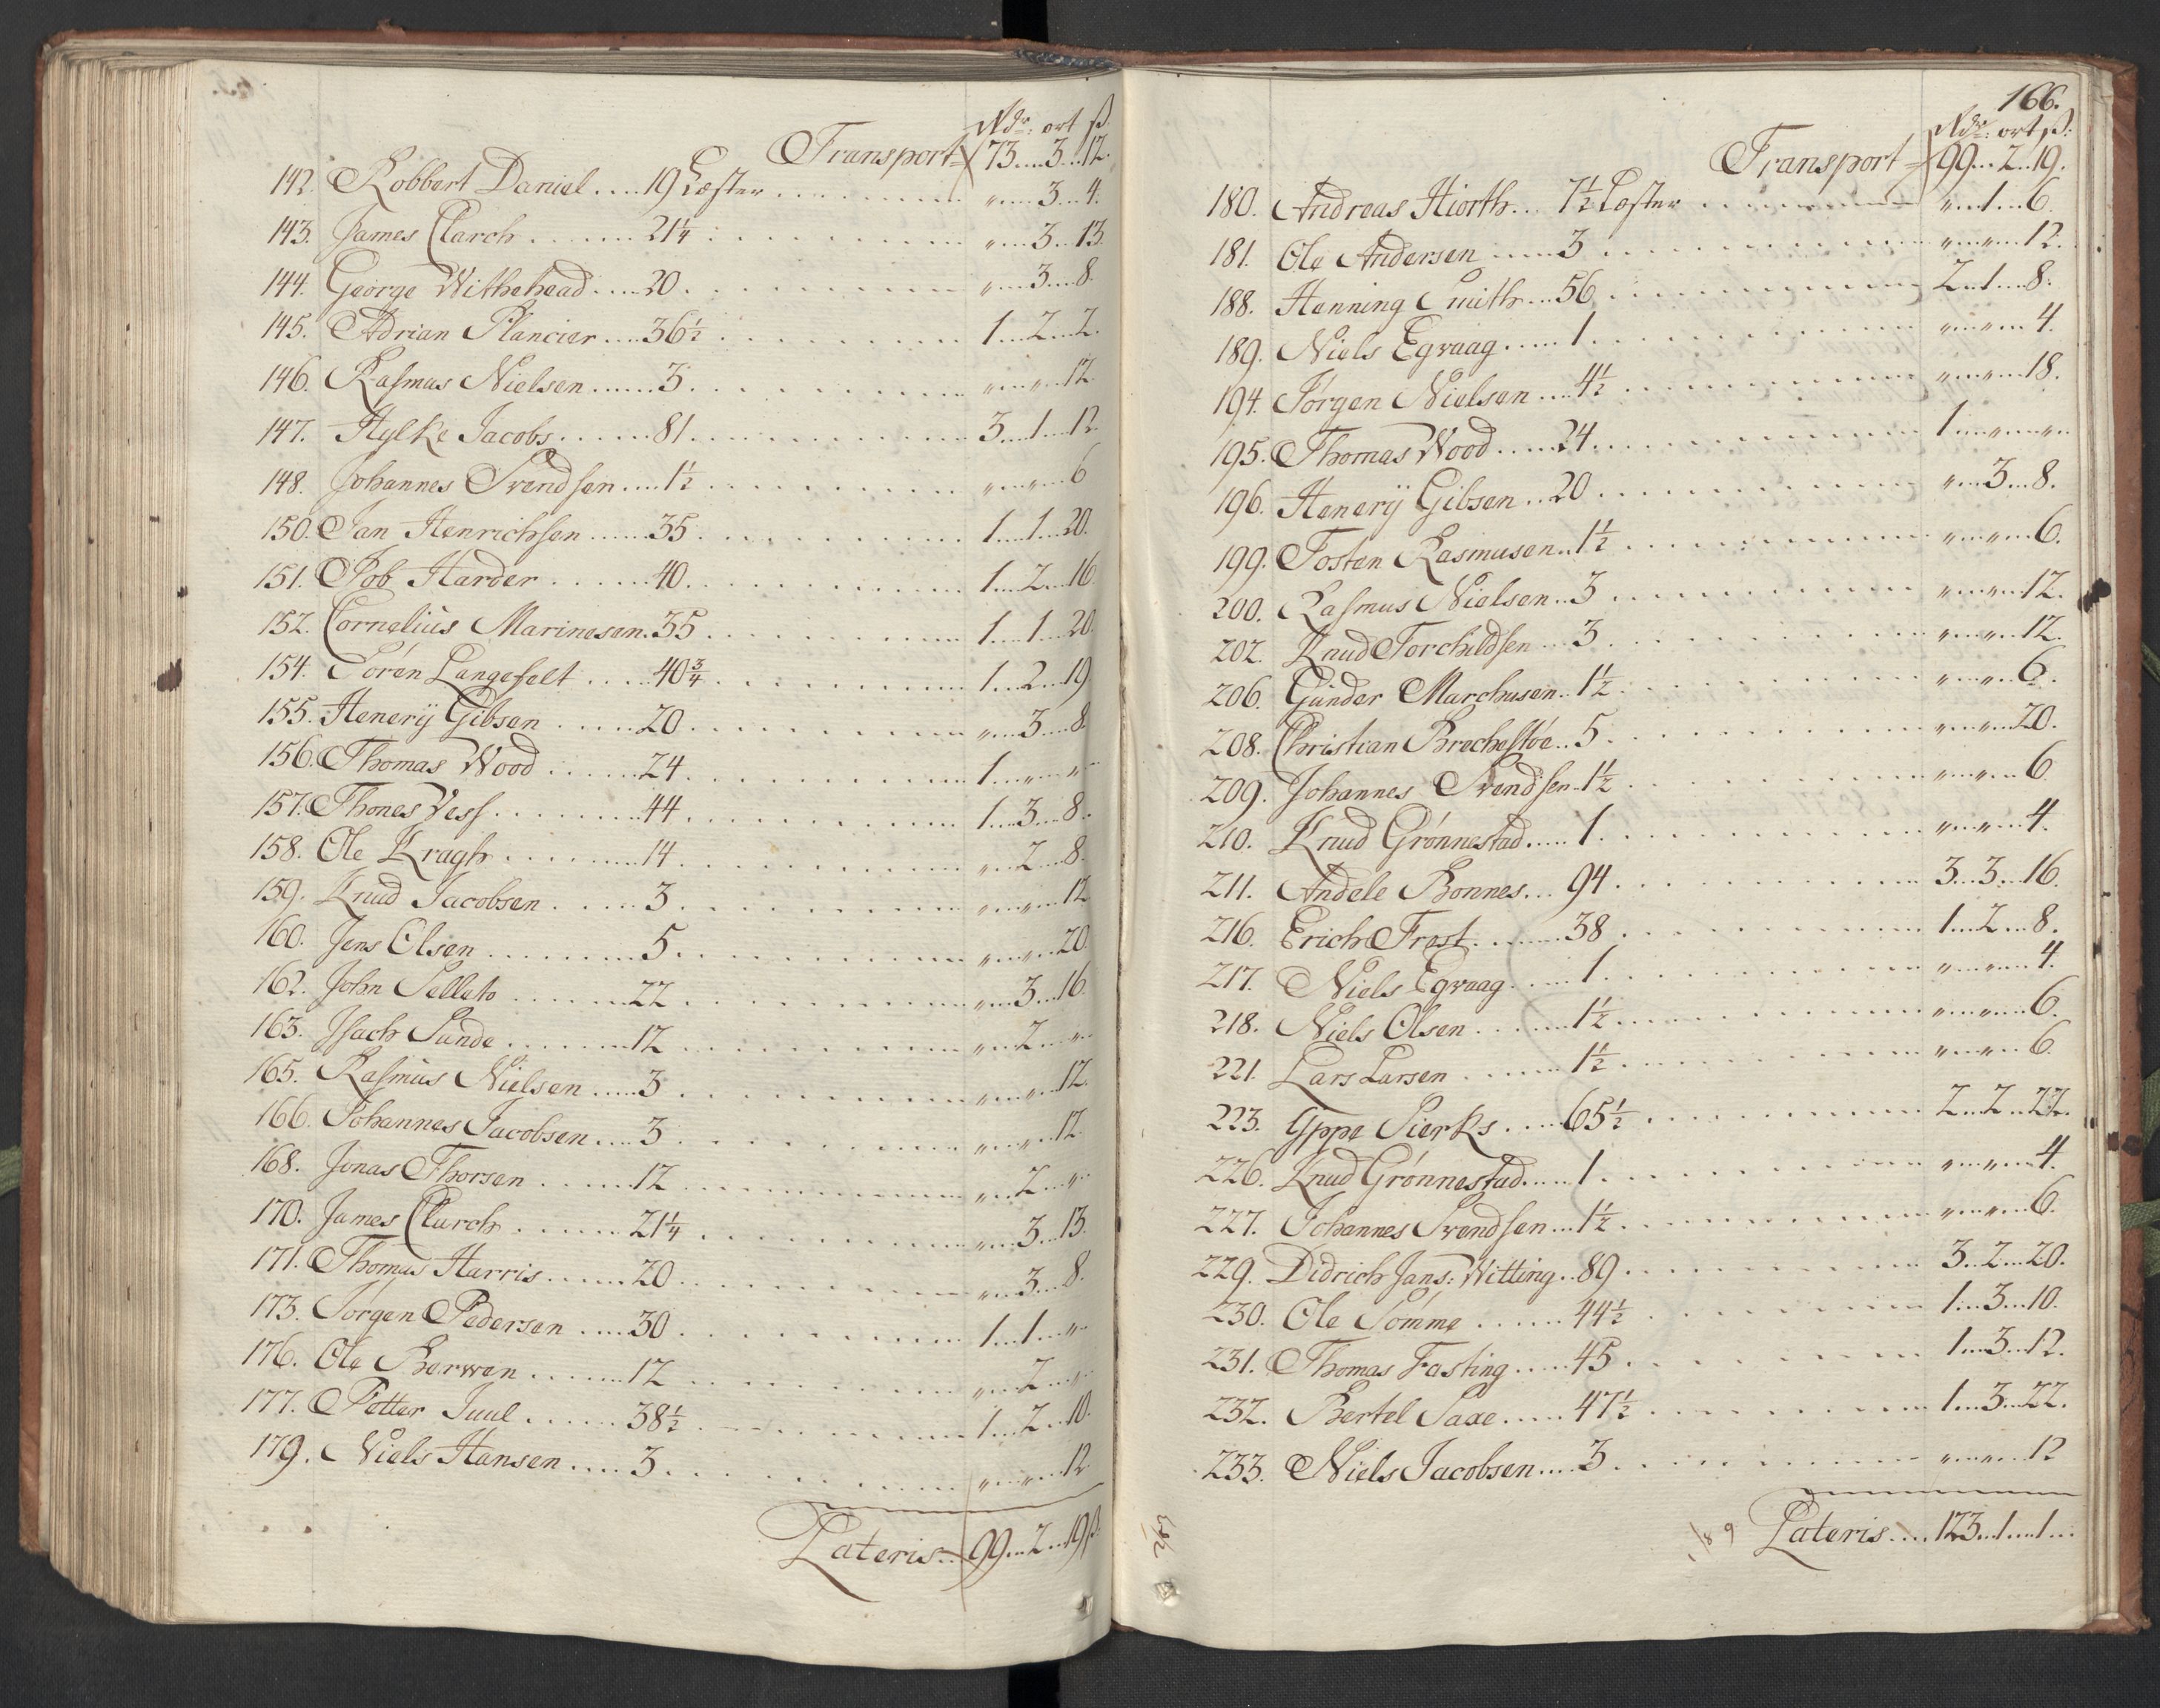 Rdr: ort ß.
Transport 73....3...12.
142. Robbert Daniel....19 Læster.... „....3...4.
143. James Clarch.......21¼.... „....3...13.
144. George Withehead.....20.... „....3....8.
145. Adrian Plancier....36½.... 1....2....2.
146. Rasmus Nielsen......3.... „....„....12.
147. Hylke Jacobs.......81.... 3....1....12.
148. Johannes Svendsen....1½.... „....„....6
150. Jan Henrichsen......35.... 1....1....20.
151. Job Harder.......40.... 1....2....16.
152. Cornelius Marinesen.35.... 1....1....20.
154. Sören Langefelt.....40¾.... 1....2....19.
155. Henerÿ Gibsen.....20.... „....3....8.
156. Thomas Wood......24.... 1....„....„
157. Thones Vess........44.... 1....3....8.
158. Ole Kragh........14.... „....2....8.
159. Knud Jacobsen.....3.... „....„....12
160. Jens Olsen.........5.... „....„....20.
162. John Selleto.......22.... „....3...16.
163. Isach Sunde.......12.... „....2....„
165. Rasmus Nielsen.....3.... „....„....12.
166. Johannes Jacobsen....3.... „....„....12.
168. Jonas Thorsen.....12.... „....2....„
170. James Clarch......21¼.... „....3...13.
171. Thomas Harris......20.... „....3....8.
173. Jörgen Pedersen.....30.... 1....1....„
176. Ole Berwen.......12.... „....2....„
177. Petter Juul......38½.... 1....2...10.
179. Niels Hansen....3.... „....„....12
Lateris...99....2...19 ß.
166.
Rdr: ort ß:
Transport 99...2...19.
180. Andreas Hiorth...7½ Læster.... „....1....6.
181. Ole Andersen.....3.... „....„....12.
188. Henning Smith...56.... 2...1....8.
189. Niels Egvaag.....1.... „....„....4.
194. Jörgen Nielsen....4½.... „....„....18.
195. Thomas Wood.....24.... 1....„....„
196. Henerÿ Gibsen..20.... „....3...8.
199. Tosten Rasmusen..1½.... „....„....6.
200. Rasmus Nielsen..3.... „....„....12.
202. Knud Torchildsen...3.... „....„....12.
206. Gunder Marchusen..1½.... „....„....6.
208. Christian Brechestöe..5.... „....„....20.
209. Johannes Svendsen..1½.... „....„....6
210. Knud Grönnestad.....1.... „....„....4.
211. Andele Bonnes...94.... 3...3...16.
216. Erich Frost.......38.... 1....2....8.
217. Niels Egvaag.....1.... „....„....4.
218. Niels Olsen......1½.... „....„....6.
221. Lars Larsen......1½.... „....„....6.
223. Yppe Sierks....65½.... 2...2...22.
226. Knud Grönnestad.....1.... „....„....4.
227. Johannes Svendsen...1½.... „....„....6.
229. Didrich Jans: Witting..89.... 3...2....20.
230. Ole Sömme......44½.... 1....3...10.
231. Thomas Fasting.....45.... 1....3...12.
232. Bertel Saxe.....47½.... 1....3...22.
233. Niels Jacobsen....3.... „....„....12
Lateris....123...1....1...